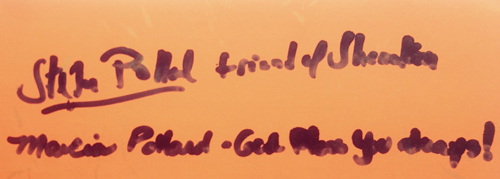 Pollard friend of
Marcia Pollard - God Bless You always!